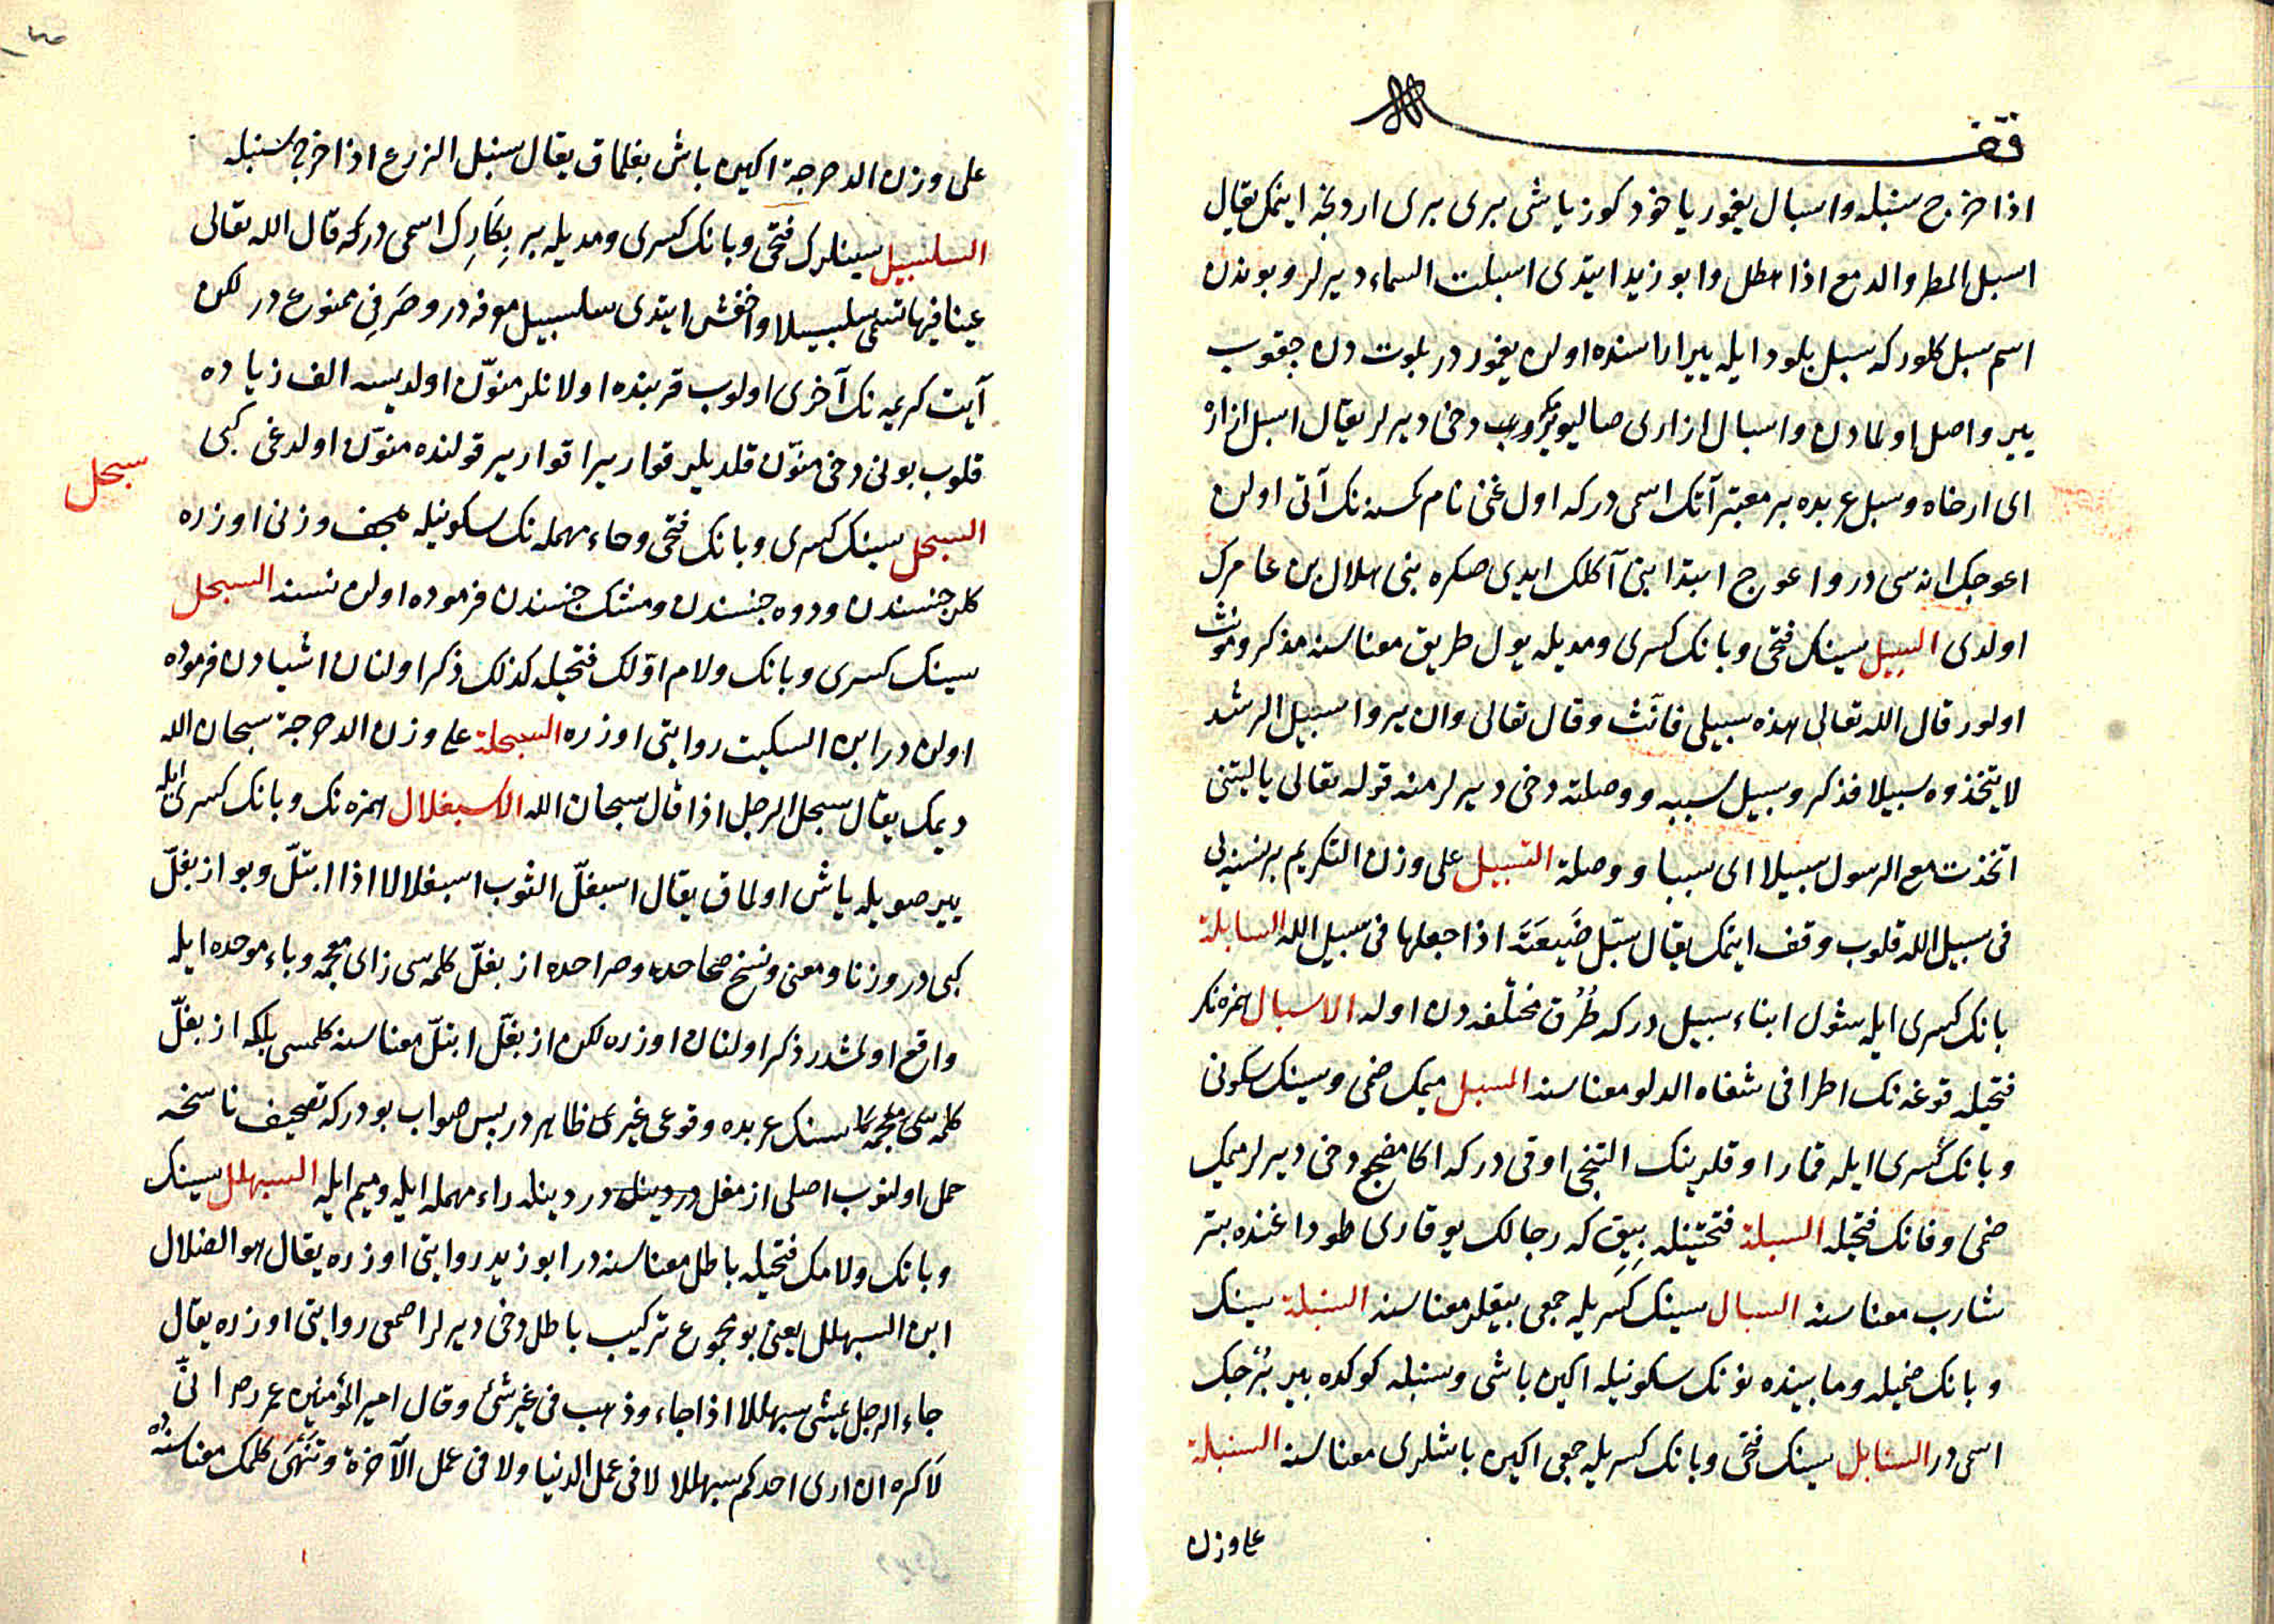 وقف
اذا خرج سنبله واسبال يغمور ياخود كوز ياشى برى برى اردنجه ايتمك يقال
اسبل المطر والدمع اذا هطل وابو زيد ايتدى اسبلت السماء ديرلر وبوندن
اسم سبل كلور كه سبل بلود ايله ير اراسنده اولن يغمور در بلوت دن جقوب
يره واصل اولمادن واسبال ازارى صاليويرمكه دخى ديرلر يقال اسبل ازاره
اى ارخاه وسبل عربده بر معتبر آتك اسمى در كه اول غنى نام كمسنه نك آتى اولن
اعوجك انه سى در واعوج ابتدا بنى آكلك ايدى صكره بنى هلال بن عامرك
اولدى السبيل سينك فتحى وبانك كسرى ومديله يول طريق معناسنه مذكر ومؤنث
اولور قال الله تعالى هذه سبيلى فانث وقال تعالى وان يروا سبيل الرشد
لا يتخذوه سبيلا فذكر وسبيل سببه ووصلته دخى ديرلر منه قوله تعالى ياليتنى
اتخذت مع الرسول سبيلا اى سببا ووصلة التسبيل على وزن التكريم بر نسنه يى
فى سبيل الله قلوب وقف ايتمك يقال سبّل ضَيعَتَه اذا جعلها فى سبيل الله السابلة
بانك كسرى ايله شول ابناء سبيل در كه طُرُق مختلفه دن اوله الاسبال همزه نك
فتحيله قوغه نك اطرافى شفاه الدلو معناسنه المسبل ميمك ضمى وسينك سكونى
وبانك كسرى ايله قمار اوقلرينك التنجى اوقى در كه اكا مصفح دخى ديرلر ميمك
ضمى وفانك فتحيله السبلة فتحتينله بِيِق كه رجالك يوقارى طوداغنده بتر
شارب معناسنه السبال سينك كسريله جمعى بيقلر معناسنه السنبلة سينك
وبانك ضميله ومابينده نونك سكونيله اكين باشى وسنبله كوكده بر بُرجك
اسمى در السنابل سينك فتحى وبانك كسريله جمعى اكين باشلرى معناسنه السنبلة
على وزن
على وزن الدحرجة اكين باش بغلماق يقال سنبل الزرع اذا خرج سنبله
السلسبيل سينلرك فتحى وبانك كسرى ومديله بر بِكَارِك اسمى در كه قال الله تعالى
عينا فيها تسمى سلسبيلا واخفش ايتدى سلسبيل معرفه در وصَرفِى ممنوع در لكن
آيت كريمه نك آخرى اولوب قربنده اولانلر منوّن اولديسه الف زياده
قلوب بونى دخى منوّن قلديلر قواريرا قوارير قولنده منوّن اولدغى كبى
سبحل
السبحل سينك كسرى وبانك فتحى وحاء مهمله نك سكونيله هجف وزنى اوزره
كلر جنسندن ودوه جنسندن ومشك جنسندن فرموده اولن نسنه السبحلل
سينك كسرى وبانك ولام اوّلك فتحيله كذلك ذكر اولنان اشيادن فرموده
اولن در ابن السكيت روايتى اوزره السبحلة على وزن الدحرجة سبحان الله
ديمك يقال سبحل الرجل اذا قال سبحان الله الاسبغلال همزه نك وبانك كسرى ايله
ير صويله ياش اولماق يقال اسبغلّ الثوب اسبغلالا اذا ابتلّ وبو ازبغلّ
كبى در وزنا ومعنى ونسخ صحاحده وصراحده ازبغلّ كلمه سى زاى معجمه وباء موحده ايله
واقع اولمشدر ذكر اولنان اوزره لكن ازبغلّ ابتلّ معناسنه كلمسى بلكه ازبغلّ
كلمه سى عربده وقوعى غيرى ظاهر در پس صواب بودر كه تصحيف ناسخه
حمل اولنوب اصلى ارمغل در دينله راء مهمله ايله وميم ايله السبهلل سينك
وبانك ولامك فتحيله باطل معناسنه در ابو زيد روايتى اوزره يقال هو الضلال
ابن السبهلل يعنى بو مجموع تركيب باطل دخى ديرلر اصمعى روايتى اوزره يقال
جاء الرجل يمشى سبهللا اذا جاء وذهب فى غير شئ وقال امير المؤمنين عمر رضه انّى
لاكره ان ارى احدكم سبهللا لا فى عمل الدنيا ولا فى عمل الآخرة وتَنَهى كلمك معناسنه ده